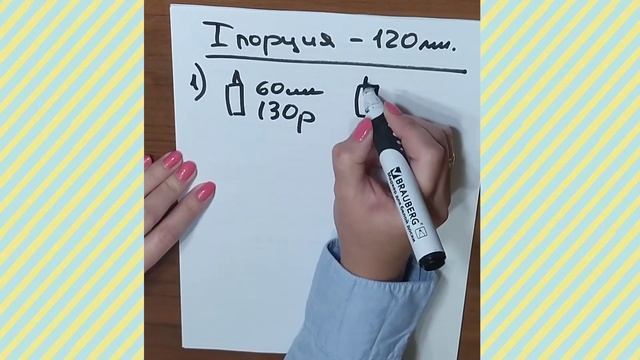 1 порция - 120 мл.
1) 60 мл
130р
BRAUBERG